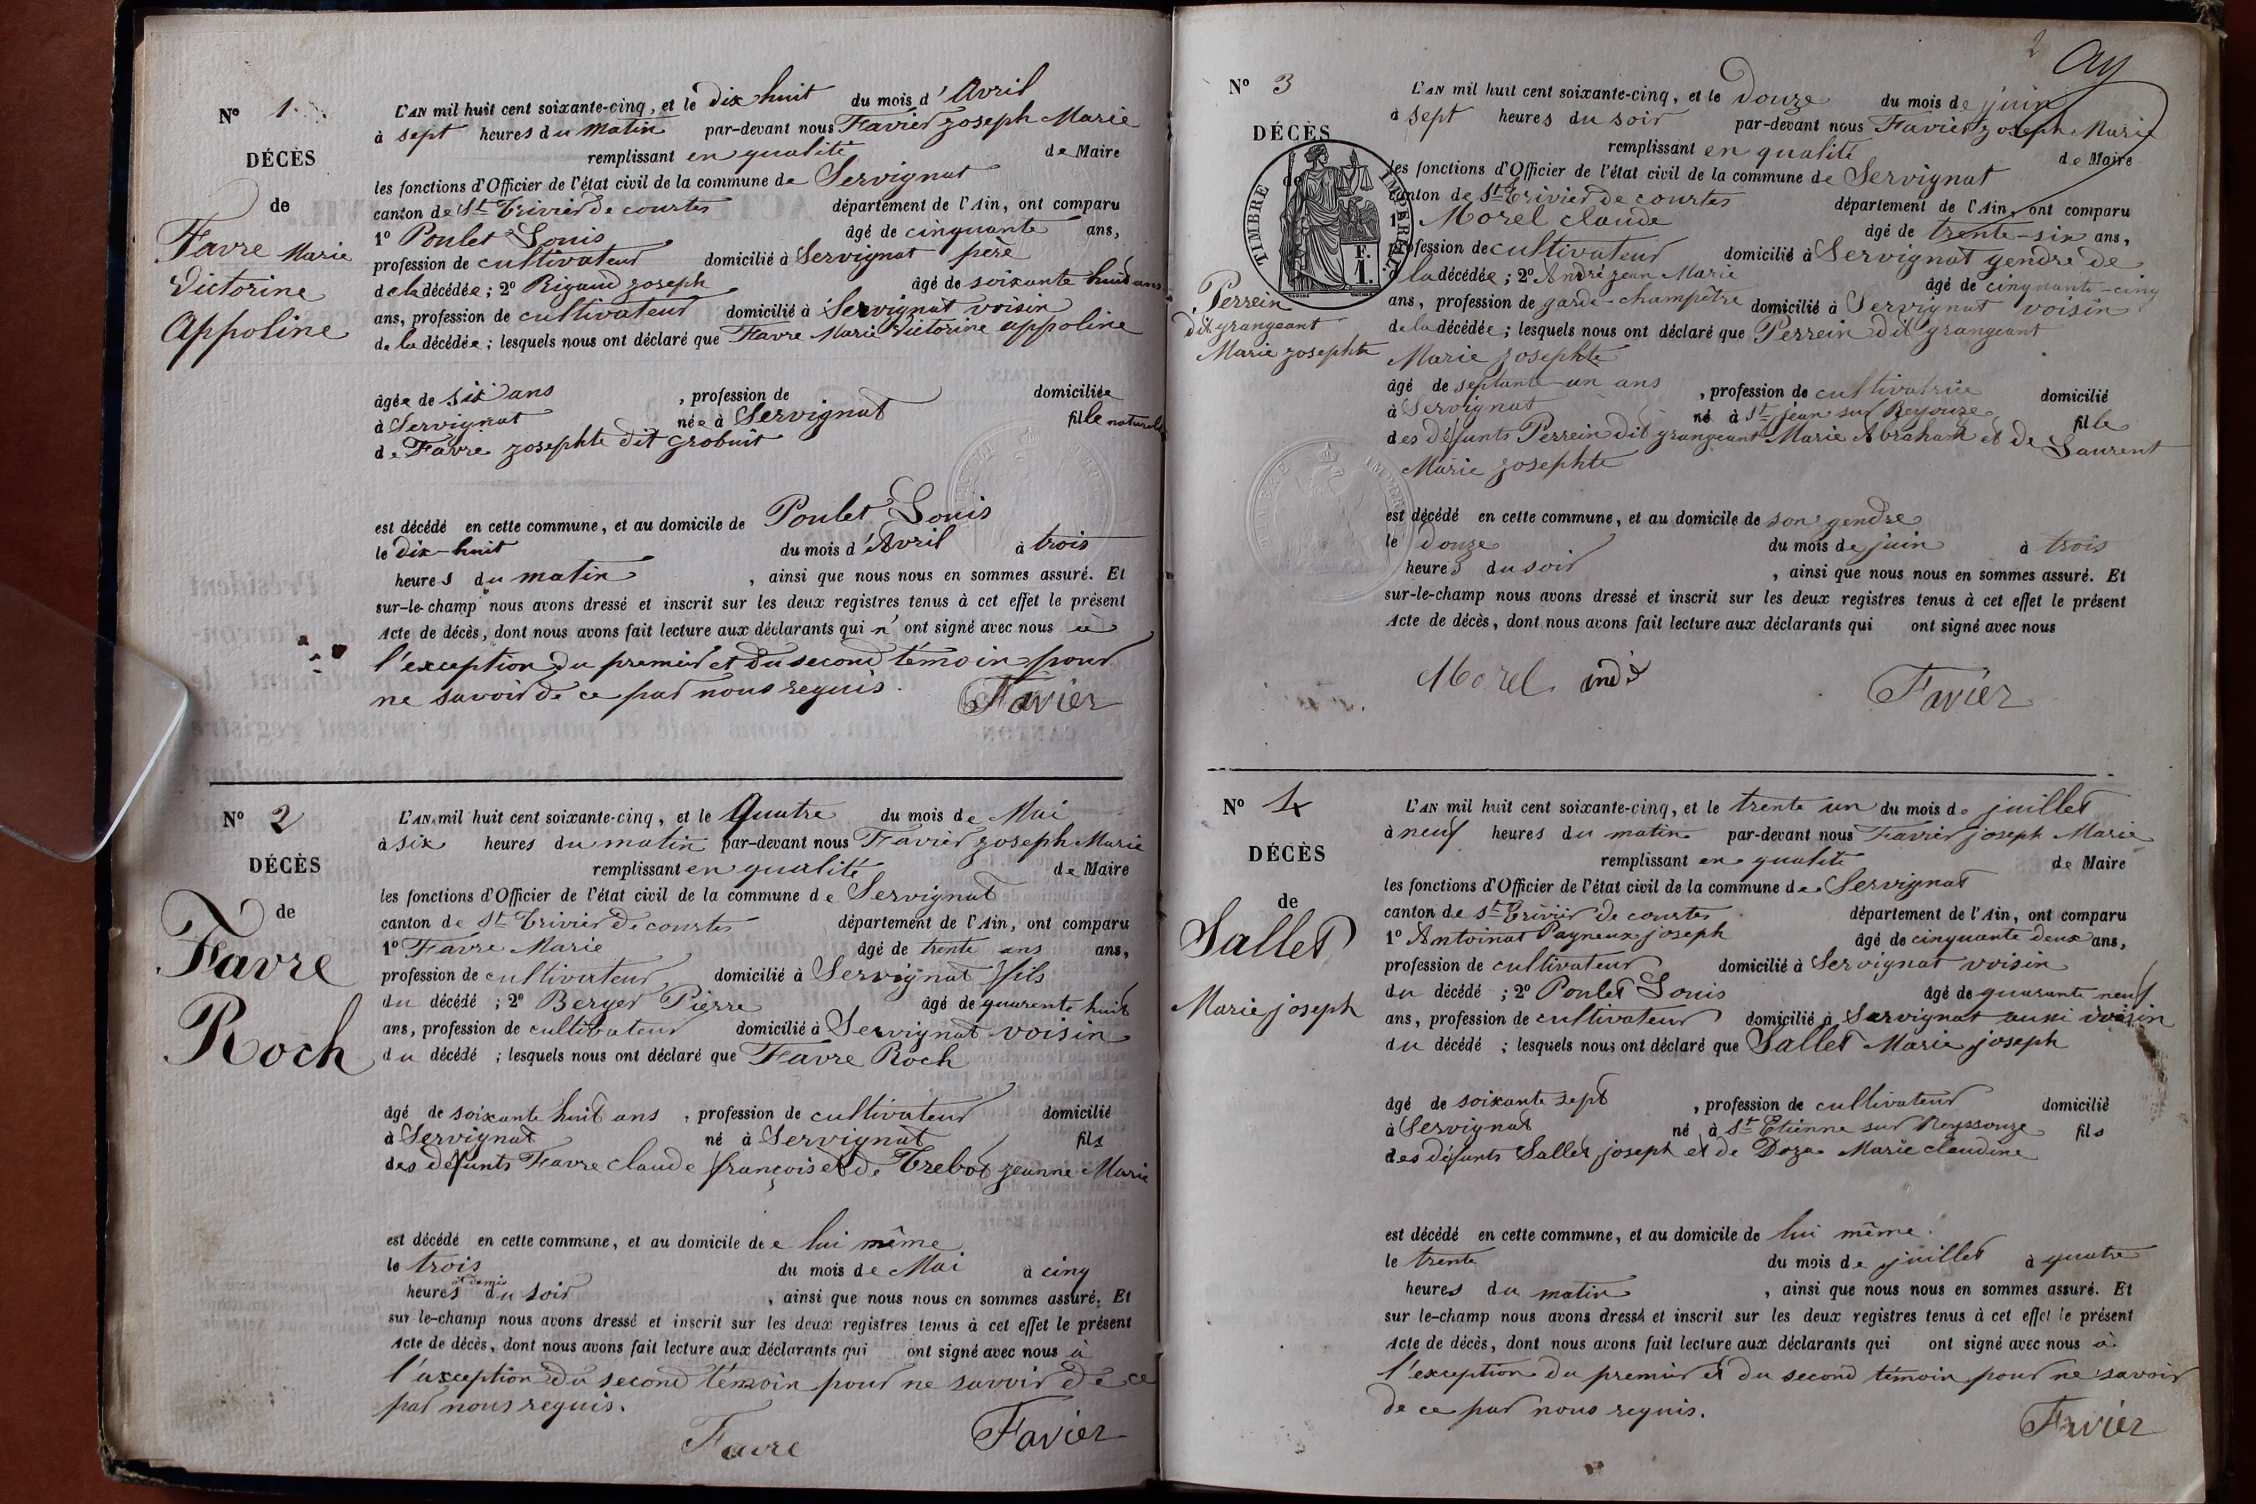 N° 1
DÉCÈS
de
Favre Marie
Victorine
Appoline
L'AN mil huit cent soixante-cinq, et le dix huit du mois d'Avril
à sept heures du matin par-devant nous Favier Joseph Marie
remplissant en qualité de Maire
les fonctions d'Officier de l'état civil de la commune de Servignat
canton de St Trivier de courtes département de l'Ain, ont comparu
1° Poulet Louis âgé de cinquante ans,
profession de cultivateur domicilié à Servignat père
de la décédée ; 2° Rigaud Joseph âgé de soixante huit ans
ans, profession de cultivateur domicilié à Servignat voisin
de la décédée ; lesquels nous ont déclaré que Favre Marie Victorine appoline
âgée de six ans , profession de domiciliée
à Servignat née à Servignat fille naturelle
de Favre Josephte dit Grobuit
est décédé en cette commune, et au domicile de Poulet Louis
le dix-huit du mois d'Avril à trois
heures du matin , ainsi que nous nous en sommes assuré. Et
sur-le-champ nous avons dressé et inscrit sur les deux registres tenus à cet effet le présent
Acte de décès, dont nous avons fait lecture aux déclarants qui n'ont signé avec nous à
l'exception du premier et du second témoin pour
ne savoir de ce par nous requis.
Favier
N° 2
DÉCÈS
de
Favre
Roch
L'AN mil huit cent soixante-cinq, et le Quatre du mois de Mai
à six heures du matin par-devant nous Favier Joseph Marie
remplissant en qualité de Maire
les fonctions d'Officier de l'état civil de la commune de Servignat
canton de St Trivier de courtes département de l'Ain, ont comparu
1° Favre Marie âgé de trente ans ans,
profession de cultivateur domicilié à Servignat fils
du décédé ; 2° Berger Pierre âgé de quarente huit
ans, profession de cultivateur domicilié à Servignat voisin
du décédé ; lesquels nous ont déclaré que Favre Roch
âgé de soixante huit ans , profession de cultivateur domicilié
à Servignat né à Servignat fils
des défunts Favre Claude françois et de Trebox Jeanne Marie
est décédé en cette commune, et au domicile de lui même
le trois du mois de Mai à cinq
et demi
heures du soir , ainsi que nous nous en sommes assuré. Et
sur le-champ nous avons dressé et inscrit sur les deux registres tenus à cet effet le présent
Acte de décès, dont nous avons fait lecture aux déclarants qui ont signé avec nous à
l'exception du second témoin pour ne savoir de ce
par nous requis.
Favre Favier
2
N° 3
DÉCÈS
de
TIMBRE IMPERIAL
F.
1.
Perrein
dit grangeant
Marie Josephte
L'AN mil huit cent soixante-cinq, et le Douze du mois de juin
à sept heures du soir par-devant nous Favier Joseph Marie
remplissant en qualité de Maire
les fonctions d'Officier de l'état civil de la commune de Servignat
canton de St Trivier de courtes département de l'Ain, ont comparu
1° Morel Claude âgé de trente-six ans,
profession de cultivateur domicilié à Servignat gendre de
la décédée ; 2° André Jean Marie âgé de cinquante-cinq
ans, profession de garde-champêtre domicilié à Servignat voisin
de la décédée ; lesquels nous ont déclaré que Perrein dit grangeant
Marie Josephte
âgé de septante-un ans , profession de cultivatrice domicilié
à Servignat né à St jean sur Reyouze fille
des Défunts Perrein dit grangeant Marie Abraham et de Laurent
Marie Josephte
est décédé en cette commune, et au domicile de son gendre
le douze du mois de juin à trois
heures du soir , ainsi que nous nous en sommes assuré. Et
sur-le-champ nous avons dressé et inscrit sur les deux registres tenus à cet effet le présent
Acte de décès, dont nous avons fait lecture aux déclarants qui ont signé avec nous
Morel Favier
N° 4
DÉCÈS
de
Sallet
Marie joseph
L'AN mil huit cent soixante-cinq, et le trente un du mois de juillet
à neuf heures du matin par-devant nous Favier joseph Marie
remplissant en qualité de Maire
les fonctions d'Officier de l'état civil de la commune de Servignat
canton de St Trivier de courtes département de l'Ain, ont comparu
1° Antoinat Payneux joseph âgé de cinquante deux ans,
profession de cultivateur domicilié à Servignat voisin
du décédé ; 2° Poulet Louis âgé de quarante neuf
ans, profession de cultivateur domicilié à Servignat aussi voisin
du décédé ; lesquels nous ont déclaré que Sallet Marie joseph
âgé de soixante sept , profession de cultivateur domicilié
à Servignat né à St Etienne sur Reyssouze fils
des défunts Sallet joseph et de Doza Marie claudine
est décédé en cette commune, et au domicile de lui même.
le trente du mois de juillet à quatre
heures du matin , ainsi que nous nous en sommes assuré. Et
sur le-champ nous avons dressé et inscrit sur les deux registres tenus à cet effet le présent
Acte de décès, dont nous avons fait lecture aux déclarants qui ont signé avec nous à
l'exception du premier et du second témoin pour ne savoir
de ce par nous requis.
Favier